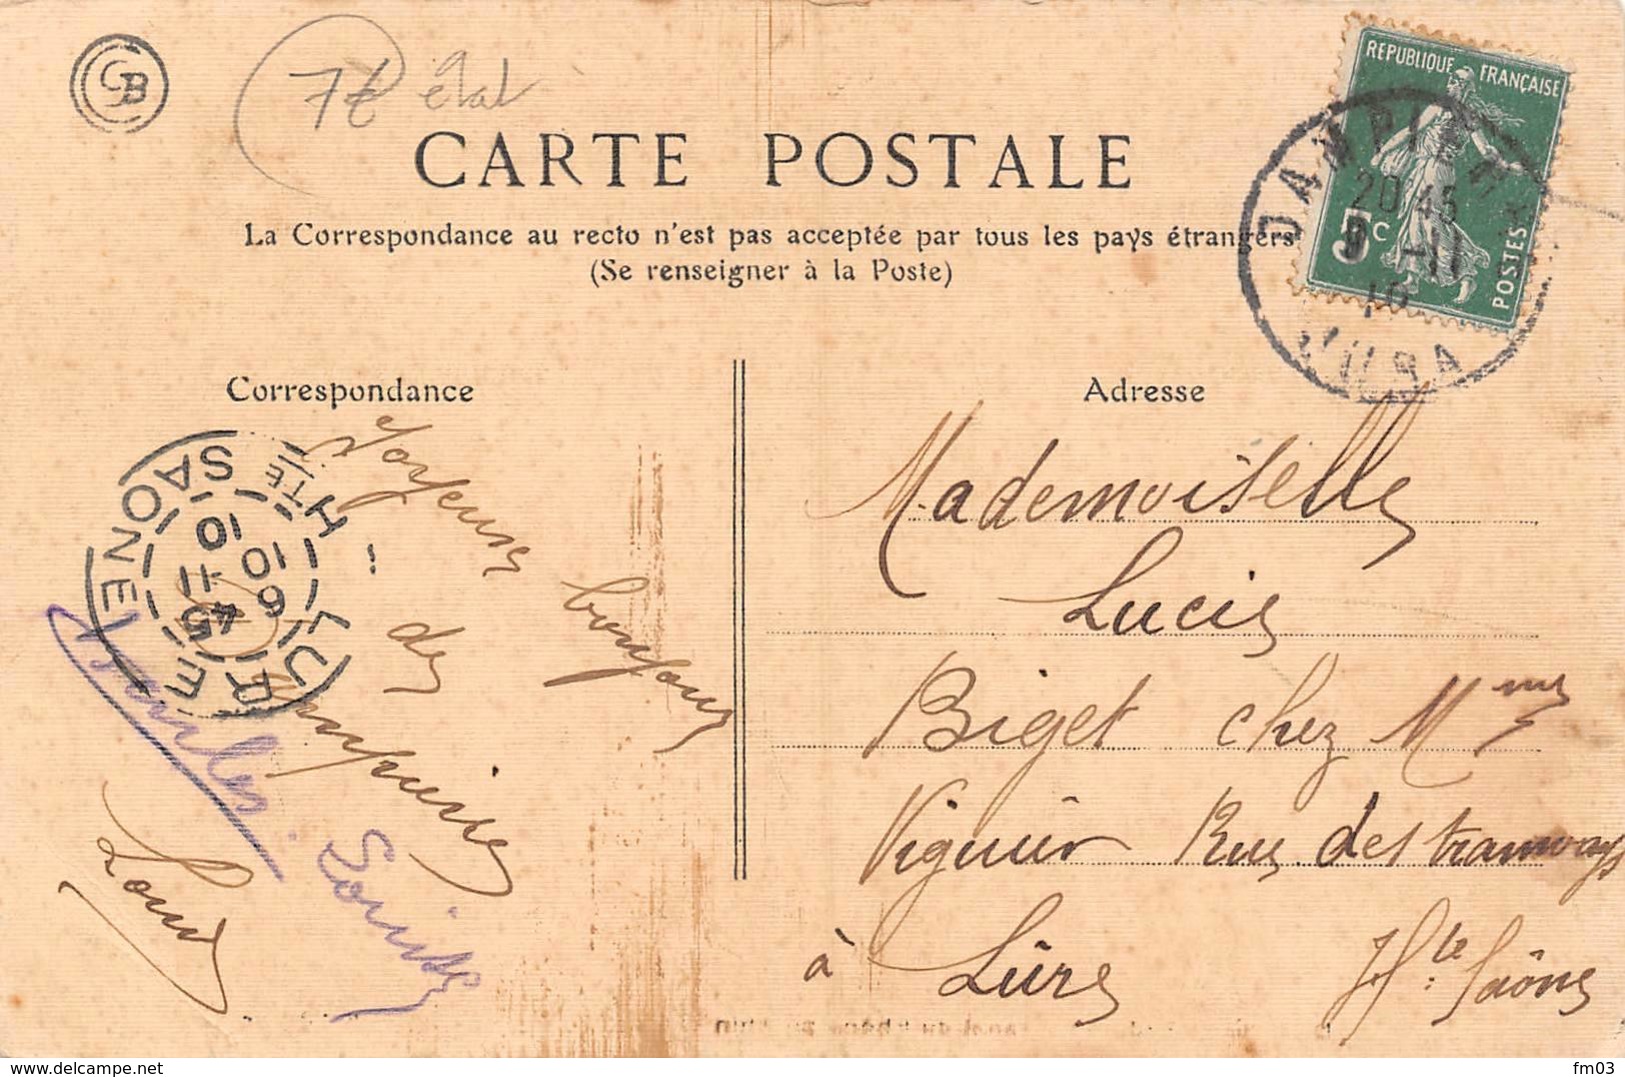 CB
7€ état
CARTE POSTALE
La Correspondance au recto n'est pas acceptée par tous les pays étrangers
(Se renseigner à la Poste)
REPUBLIQUE FRANÇAISE
5c
POSTES
DAMPIERRE
20 45
9 -11
10
JURA
Correspondance
Adresse
LURE
HTE SAONE
6 45
10 - 11
10
Joyeux bonjour
de
Dampierre
Louis
Mademoiselle
Lucie
Biget chez Mme
Viguier Rue des tramways
à Lûre Hte Saône
www.delcampe.net
fm03